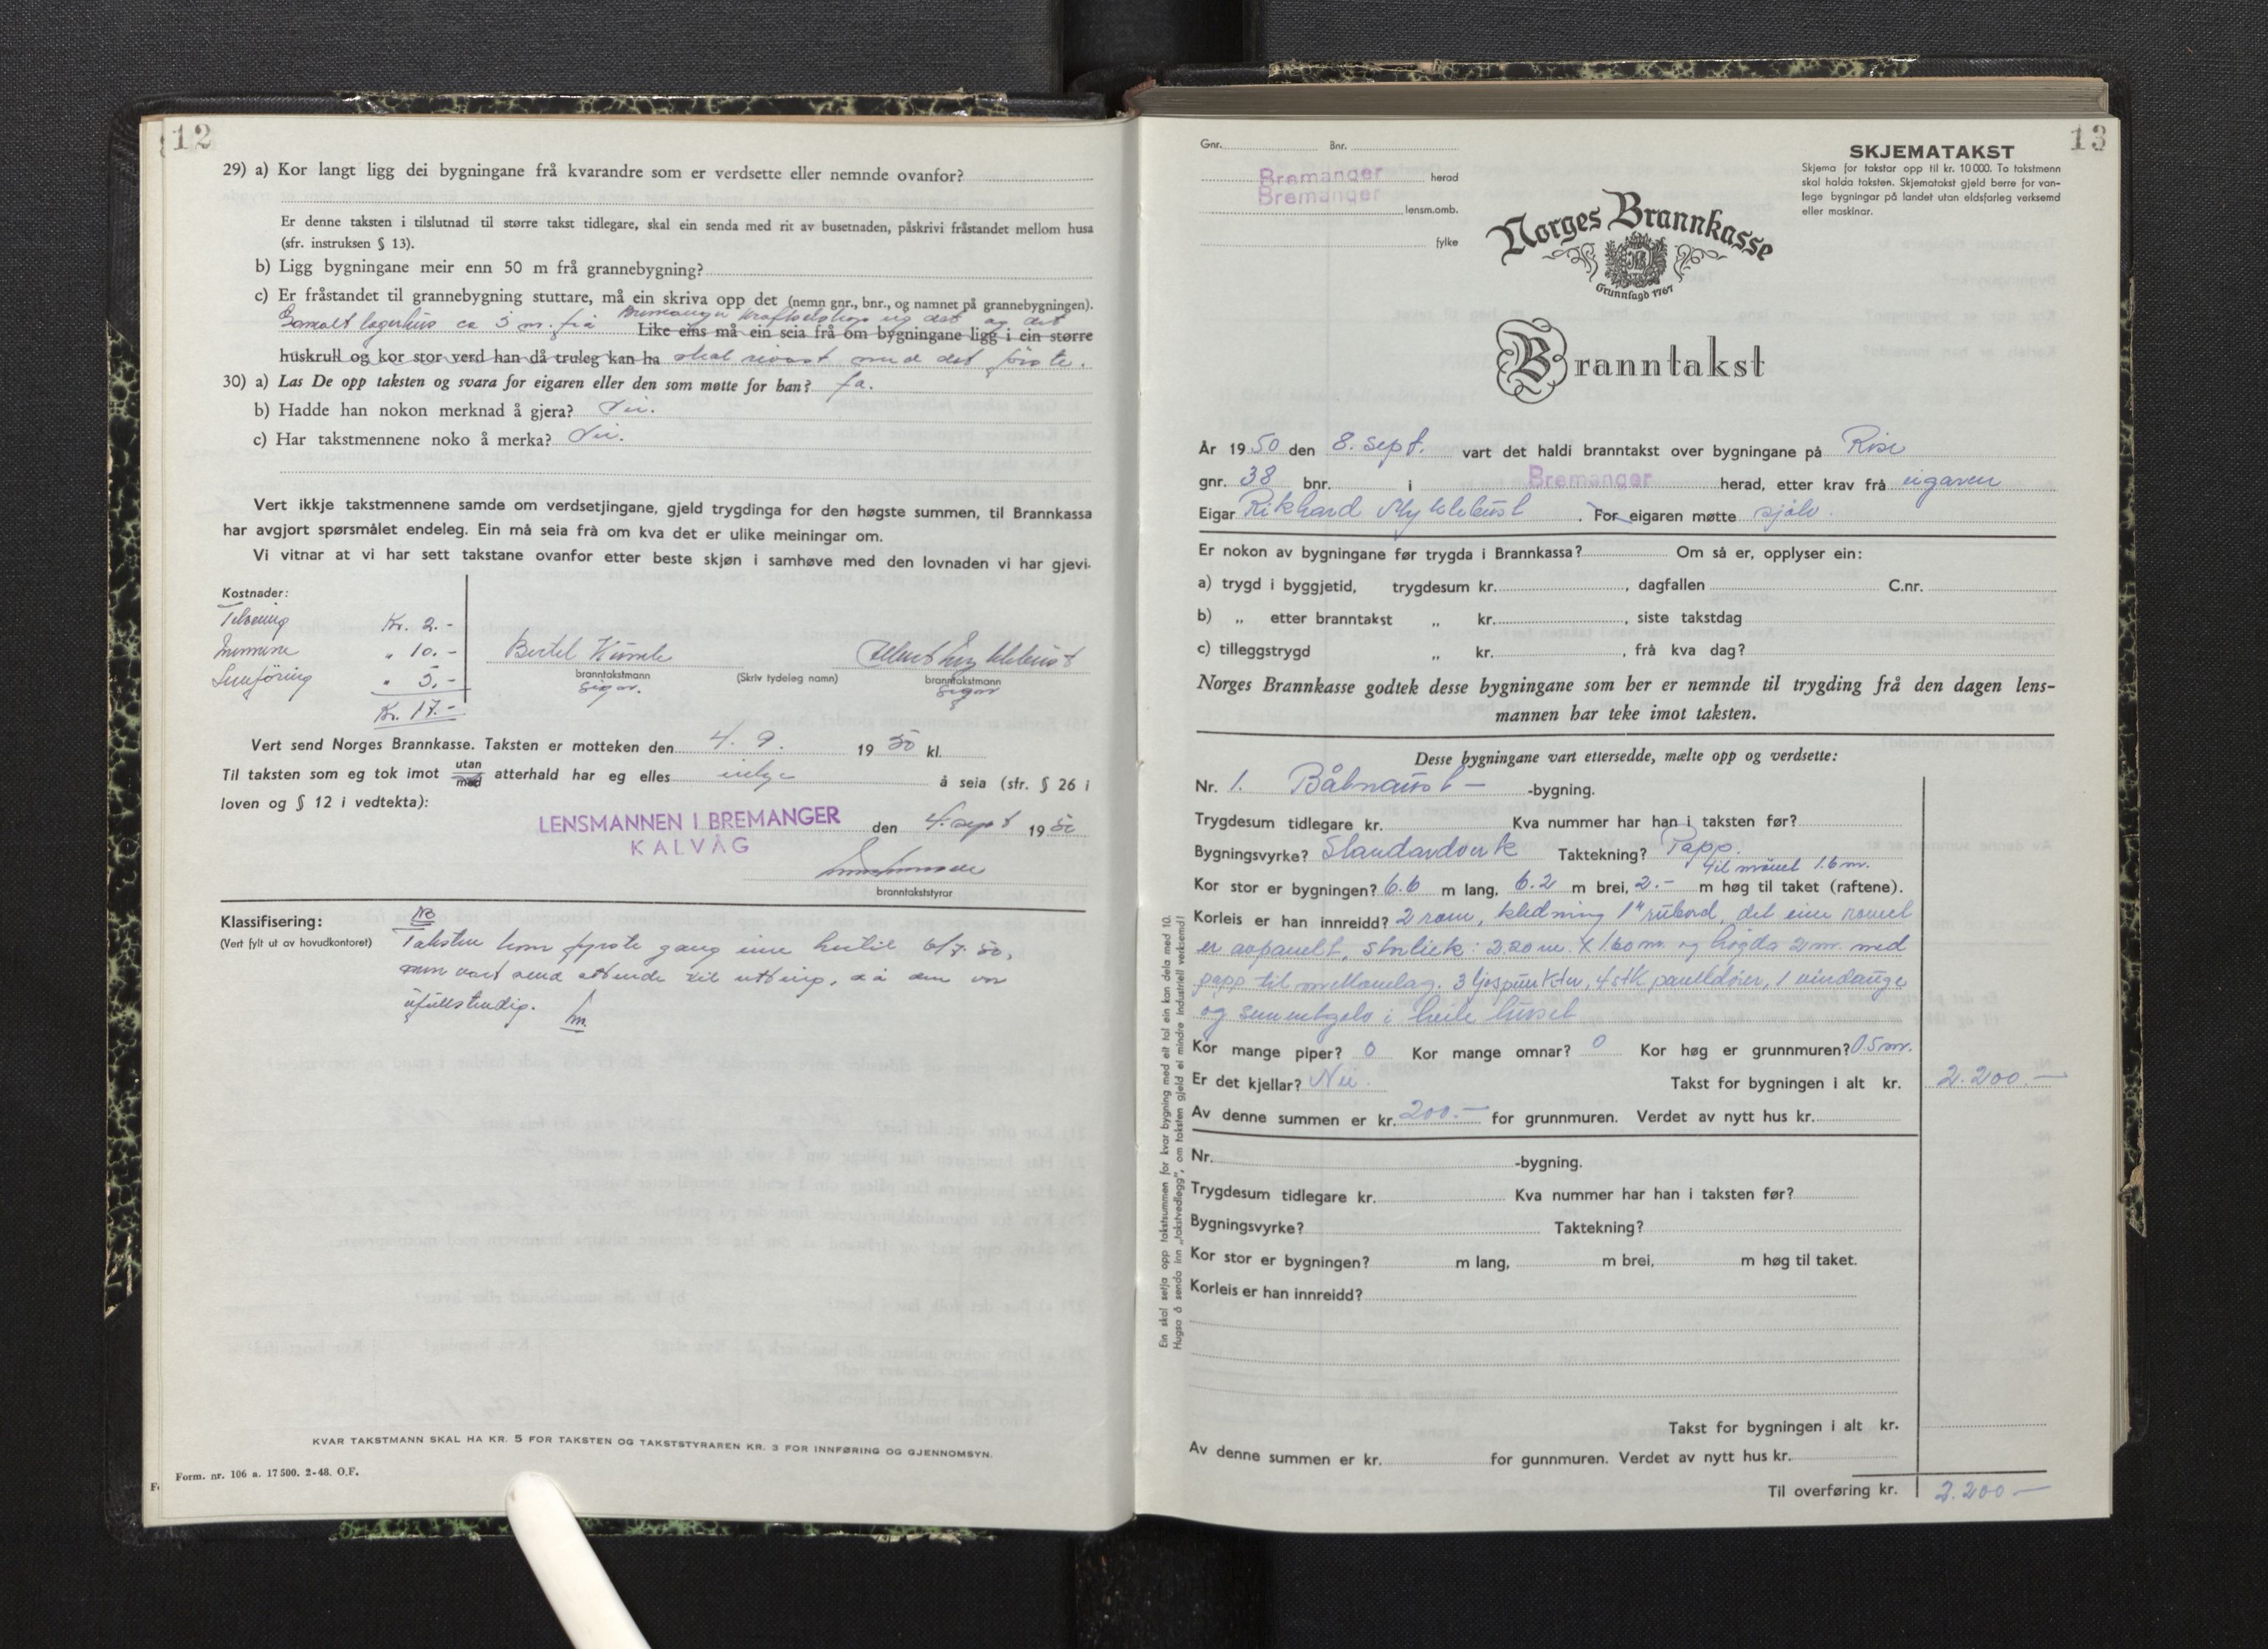 12
29) a) Kor langt ligg dei bygningane frå kvarandre som er verdsette eller nemnde ovanfor?
Er denne taksten i tilslutnad til større takst tidlegare, skal ein senda med rit av busetnaden, påskrivi fråstandet mellom husa
(sfr. instruksen § 13).
b) Ligg bygningane meir enn 50 m frå grannebygning?
c) Er fråstandet til grannebygning stuttare, må ein skriva opp det (nemn gnr., bnr., og namnet på grannebygningen).
Gamalt lagerhus ca 5 m. frå Bremanger Kraftselskap og det
Like eins må ein seia frå om bygningane ligg i ein større
huskrull og kor stor verd han då truleg kan ha skal rivast med det første.
30) a) Las De opp taksten og svara for eigaren eller den som møtte for han? Ja.
b) Hadde han nokon merknad å gjera? Nei.
c) Har takstmennene noko å merka? Nei.
Vert ikkje takstmennene samde om verdsetjingane, gjeld trygdinga for den høgste summen, til Brannkassa
har avgjort spørsmålet endeleg. Ein må seia frå om kva det er ulike meiningar om.
Vi vitnar at vi har sett takstane ovanfor etter beste skjøn i samhøve med den lovnaden vi har gjevi.
Kostnader:
Kr. 2.-
" 10.-
Innføring " 5.-
Kr. 17.-
Bertel
branntakstmann (Skriv tydeleg namn) branntakstmann
Vert send Norges Brannkasse. Taksten er motteken den 4. 9. 19 50 kl.
Til taksten som eg tok imot utan med atterhald har eg elles inkje å seia (sfr. § 26 i
loven og § 12 i vedtekta):
LENSMANNEN I BREMANGER den 4. sept 19 50
KALVÅG
branntakststyrar
Klassifisering:
(Vert fylt ut av hovudkontoret)
NB
Taksten kom fyrste gang inn hertil 6/7 50,
men vart send attende til retting, då den var
ufullstendig.
KVAR TAKSTMANN SKAL HA KR. 5 FOR TAKSTEN OG TAKSTSTYRAREN KR. 3 FOR INNFØRING OG GJENNOMSYN.
Form. nr. 106 a. 17500. 2-48. O.F.
13
Gnr. Bnr.
Bremanger herad
Bremanger lensm.omb.
fylke
SKJEMATAKST
Skjema for takstar opp til kr. 10000. To takstmenn
skal halda taksten. Skjematakst gjeld berre for van-
lege bygningar på landet utan eldsfarleg verksemd
eller maskinar.
Norges Brannkasse
Grunnlagd 1767
Branntakst
År 1950 den 8. sept. vart det haldi branntakst over bygningane på Rise
gnr. 38 bnr. i Bremanger herad, etter krav frå eigaren
Eigar Rikhard Myklebust. For eigaren møtte sjølv.
Er nokon av bygningane før trygda i Brannkassa? Om så er, opplyser ein:
a) trygd i byggjetid, trygdesum kr. , dagfallen C.nr.
b) „ etter branntakst „ kr. , siste takstdag
c) tilleggstrygd „ kr. , frå kva dag?
Norges Brannkasse godtek desse bygningane som her er nemnde til trygding frå den dagen lens-
mannen har teke imot taksten.
Desse bygningane vart ettersedde, mælte opp og verdsette:
Nr. 1. Båtnaust — -bygning.
Trygdesum tidlegare kr. Kva nummer har han i taksten før?
Bygningsvyrke? Standardverk Taktekning? Papp.
til mønet 1.6 m.
Kor stor er bygningen? 6.6 m lang, 6.2 m brei, 2.- m høg til taket (raftene).
Korleis er han innreidd? 2 rom, kledning 1" rubord, det eine romet
er avpanelt, storleik: 2.20 m. X 1.60 m. og høgda 2 m. med
papp til mellomlag. 3 ljospunkter, 4 stk paneldører, 1 vindauge
og sementgolv i heile huset
Kor mange piper? 0 Kor mange omnar? 0 Kor høg er grunnmuren? 0.5 m.
Er det kjellar? Nei. Takst for bygningen i alt kr. 2.200.—
Av denne summen er kr. 200.— for grunnmuren. Verdet av nytt hus kr.
Nr. -bygning.
Trygdesum tidlegare kr. Kva nummer har han i taksten før?
Bygningsvyrke? Taktekning?
Kor stor er bygningen? m lang, m brei, m høg til taket.
Korleis er han innreidd?
Takst for bygningen i alt kr.
Av denne summen er kr. for gunnmuren. Verdet av nytt hus kr.
Til overføring kr. 2.200—
Ein skal setja opp takstsummen for kvar bygning med eit tal ein kan dela med 10.
Hugsa å senda inn „takstvedlegg", om taksten gjeld ei mindre industriell verksemd!